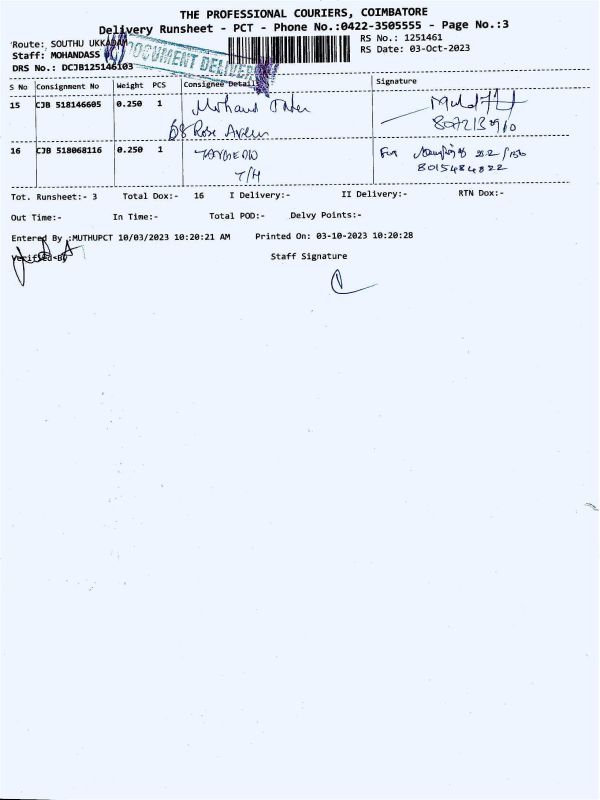 THE PROFESSIONAL COURIERS, COIMBATORE
Delivery Runsheet - PCT - Phone No.:0422-3505555 - Page No.:3
Route: SOUTHU UKKADAM
RS No.: 1251461
Staff: MOHANDASS
RS Date: 03-Oct-2023
DOCUMENT DELIVERY
DRS No.: DCJB125146103
S No Consignment No Weight PCS Consignee Detail Signature
15 CJB 518146605 0.250 1
68 Rose
16 CJB 518068116 0.250 1
T/H
8015484822
Tot. Runsheet:- 3 Total Dox:- 16 I Delivery:- II Delivery:- RTN Dox:-
Out Time:- In Time:- Total POD:- Delvy Points:-
Entered By :MUTHUPCT 10/03/2023 10:20:21 AM Printed On: 03-10-2023 10:20:28
Verified By Staff Signature